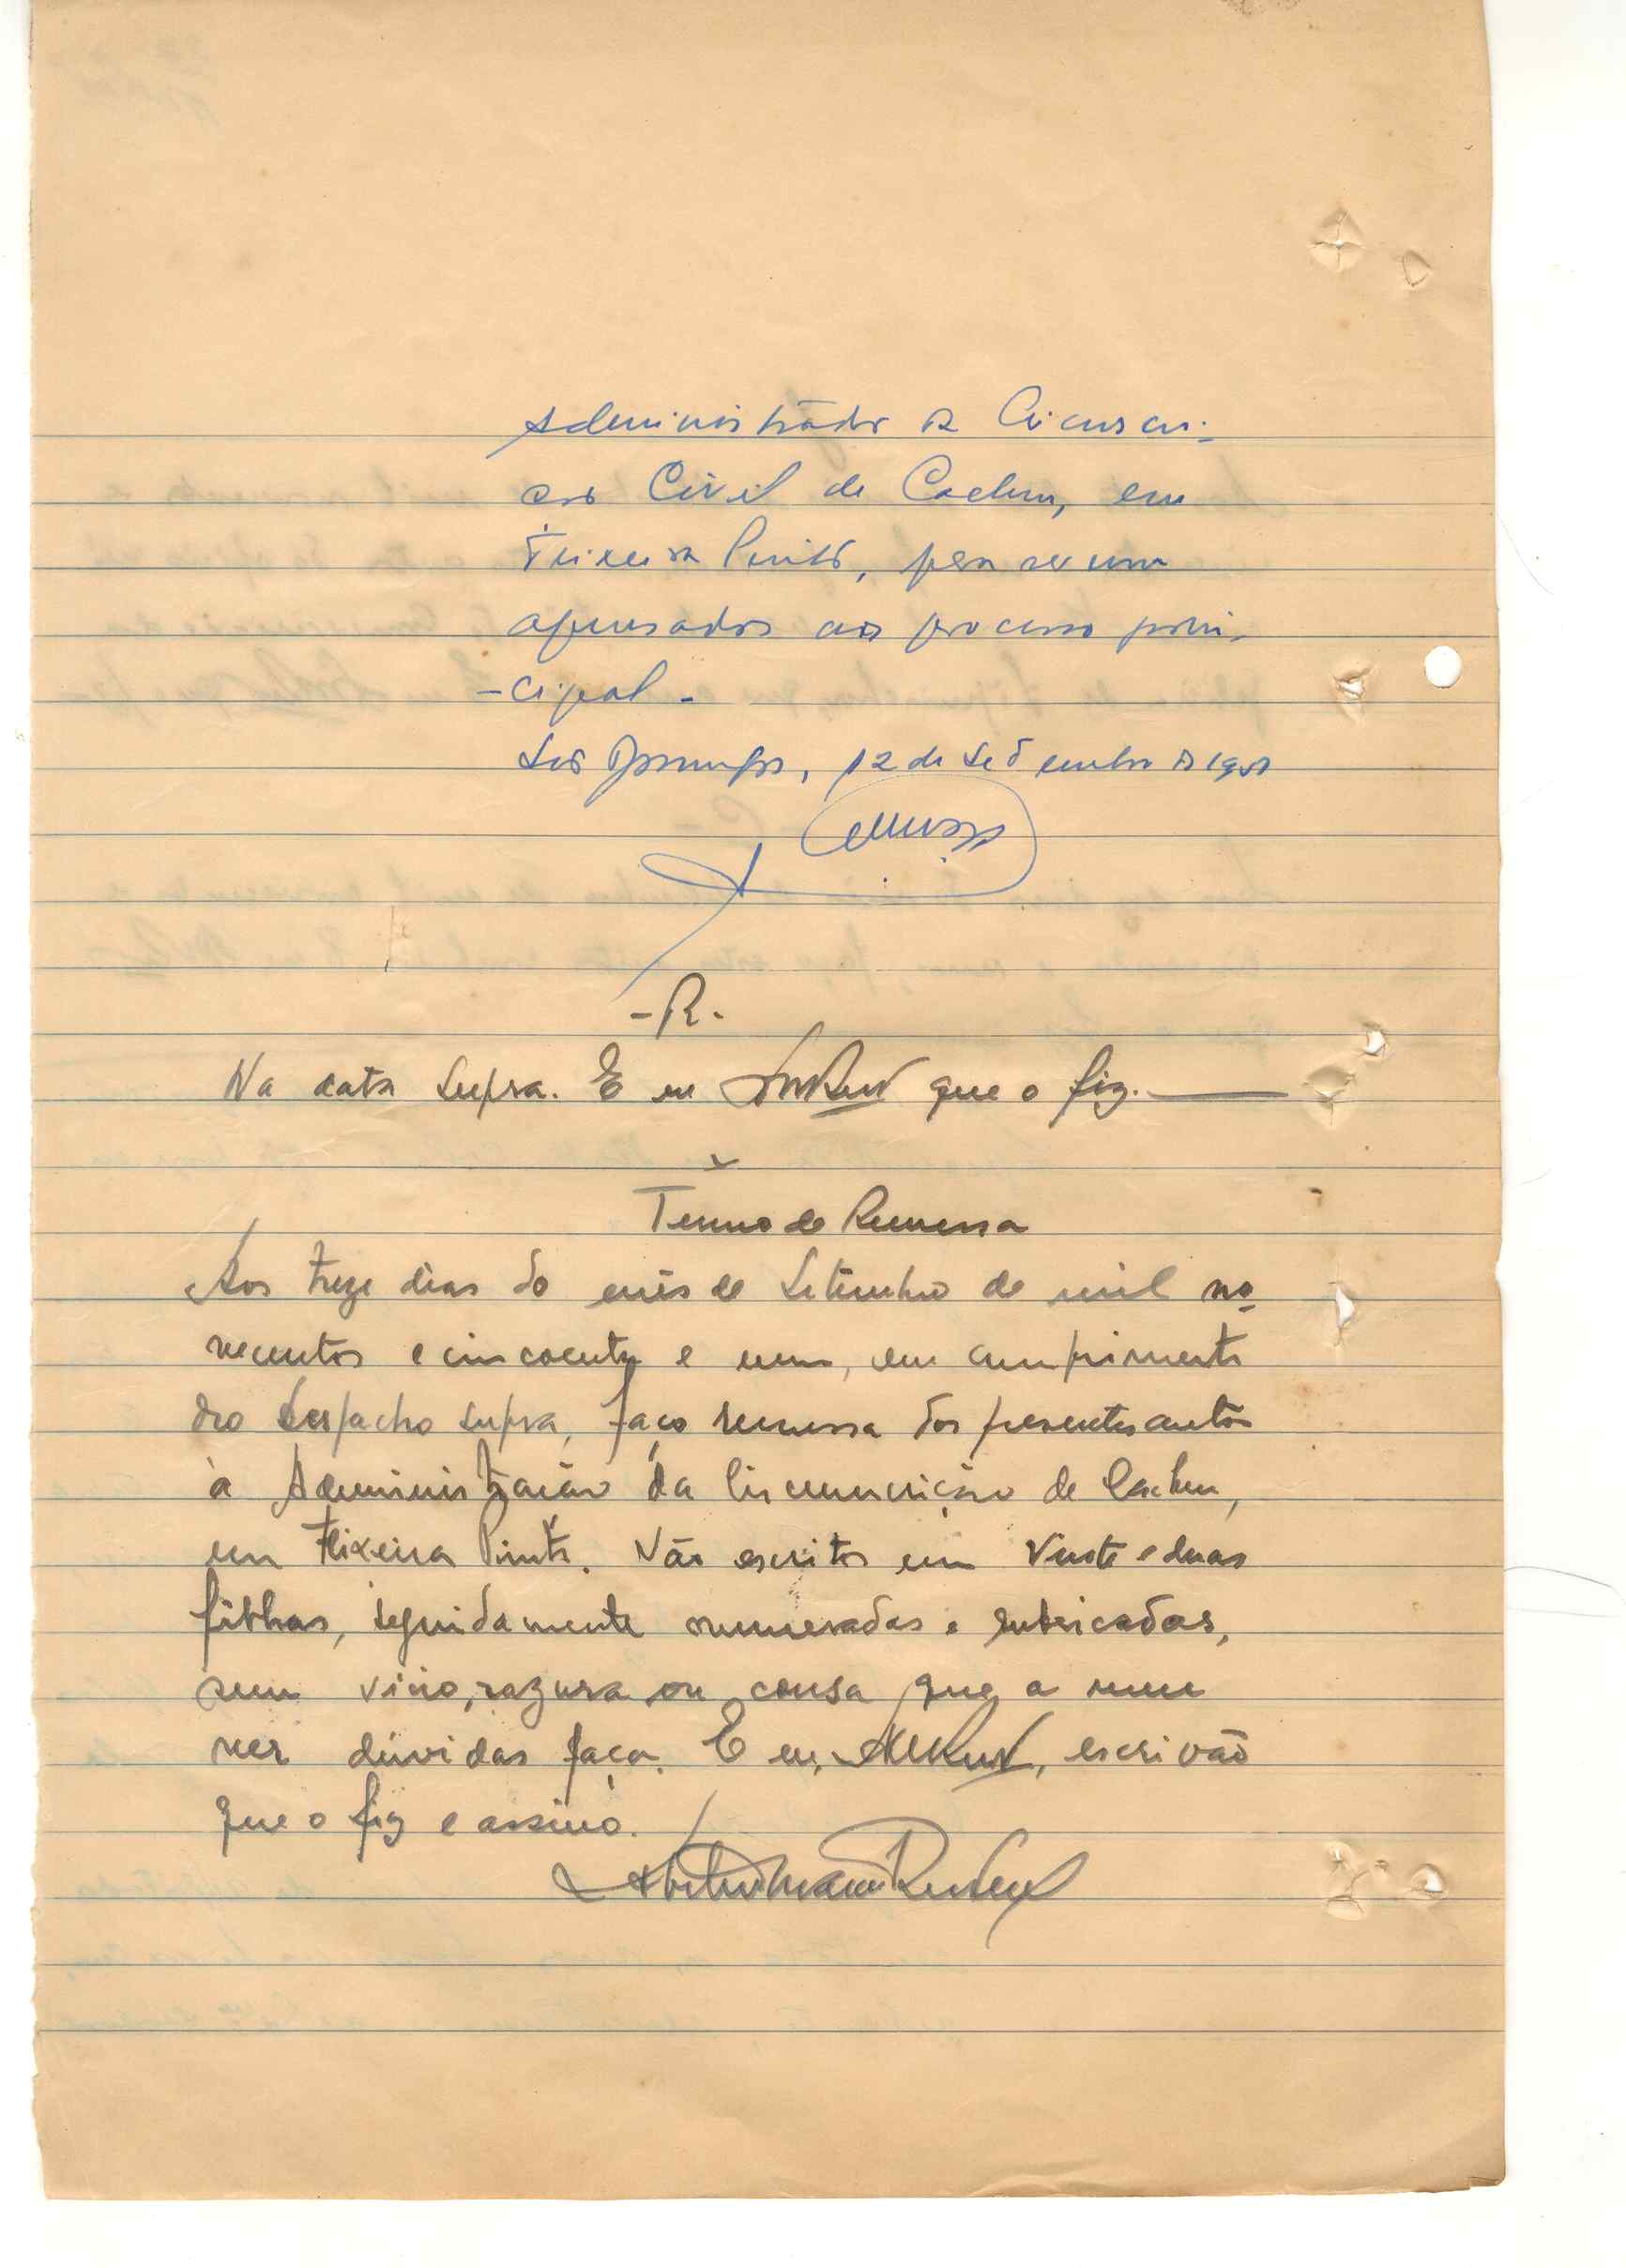 Administrador da Circuns-
ção Civil de Cacheu, em
Teixeira Pinto, para serem
apensados ao processo prin-
-cipal -
São Domingos, 12 de Setembro de 1951
- R -
Na data supra. E eu que o fiz.
x
Termo de Remessa
Aos treze dias do mês de Setembro de mil no
vecentos e cincoenta e um, em cumprimento
do despacho supra, faço remessa dos presentes autos
à Administração da Circunscrição de Cacheu,
em Teixeira Pinto. Vão escritos em vinte e duas
fôlhas, seguidamente numeradas e rubricadas,
sem vicio, razura ou cousa que a meu
ver dúvidas faça. E eu, escrivão
que o fiz e assino.